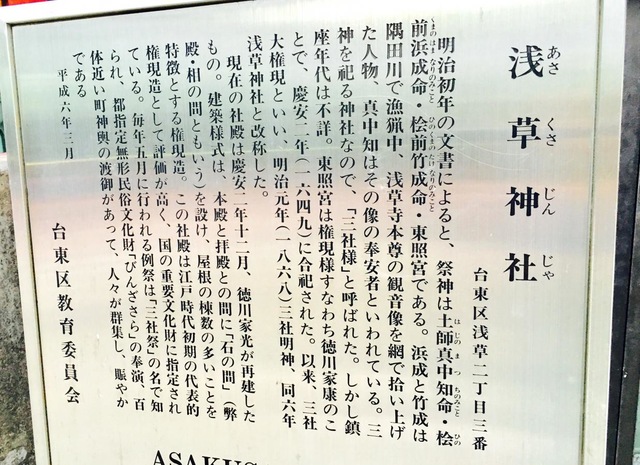 浅草神社
あさくさじんじゃ
台東区浅草二丁目三番
明治初年の文書によると、祭神は土師真中知命・桧
前浜成命・桧前竹成命・東照宮である。浜成と竹成は
隅田川で漁猟中、浅草寺本尊の観音像を網で拾い上げ
た人物、真中知はその像の奉安者といわれている。三
神を祀る神社なので、「三社様」と呼ばれた。しかし鎮
座年代は不詳。東照宮は権現様すなわち徳川家康のこ
とで、慶安二年(一六四九)に合祀された。以来、三社
大権現といい、明治元年(一八六八)三社明神、同六年
浅草神社と改称した。
現在の社殿は慶安二年十二月、徳川家光が再建した
もの。建築様式は、本殿と拝殿との間に「石の間」(弊
殿・相の間ともいう)を設け、屋根の棟数の多いことを
特徴とする権現造。この社殿は江戸時代初期の代表的
権現造として評価が高く、国の重要文化財に指定され
ている。毎年五月に行われる例祭は「三社祭」の名で知
られ、都指定無形民俗文化財「びんざさら」の奉演、百
体近い町神輿の渡御があって、人々が群集し、賑やか
である
平成六年三月
台東区教育委員会